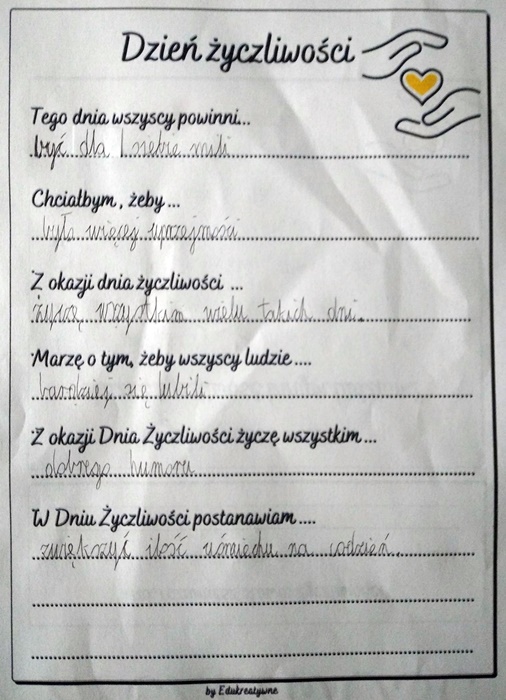 Dzień życzliwości
Tego dnia wszyscy powinni...
być dla siebie mili
Chciałbym, żeby ...
było więcej uprzejmości
Z okazji dnia życzliwości ...
życzę wszystkim wielu takich dni.
Marzę o tym, żeby wszyscy ludzie ....
bardziej się lubili
Z okazji Dnia Życzliwości życzę wszystkim ...
dobrego humoru
W Dniu Życzliwości postanawiam ....
zwiększyć ilość uśmiechu na codzień.
by Edukreatywne